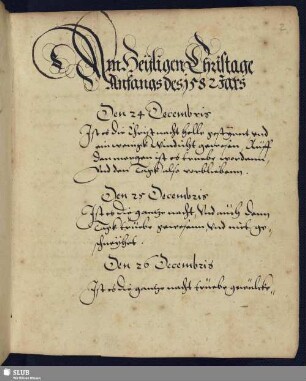 Am Heÿligen Christage
Anfangs des 1582 Jars
Den 24 Decembris
Ist es die Christnacht helle gestirnt vnd
ein wenigk windicht gewesen. Auff
den morgen ist es truebe worden
vnd den Tagk also verblieben.
Den 25 Decembris
Ist es die gantze nacht, vnd auch denn
Tagk truebe gewesen vnd mit ge-
schneÿhet.
Den 26 Decembris
Ist es die gantze nacht truebe gewülcke-
SLUB
Wir führen Wissen.